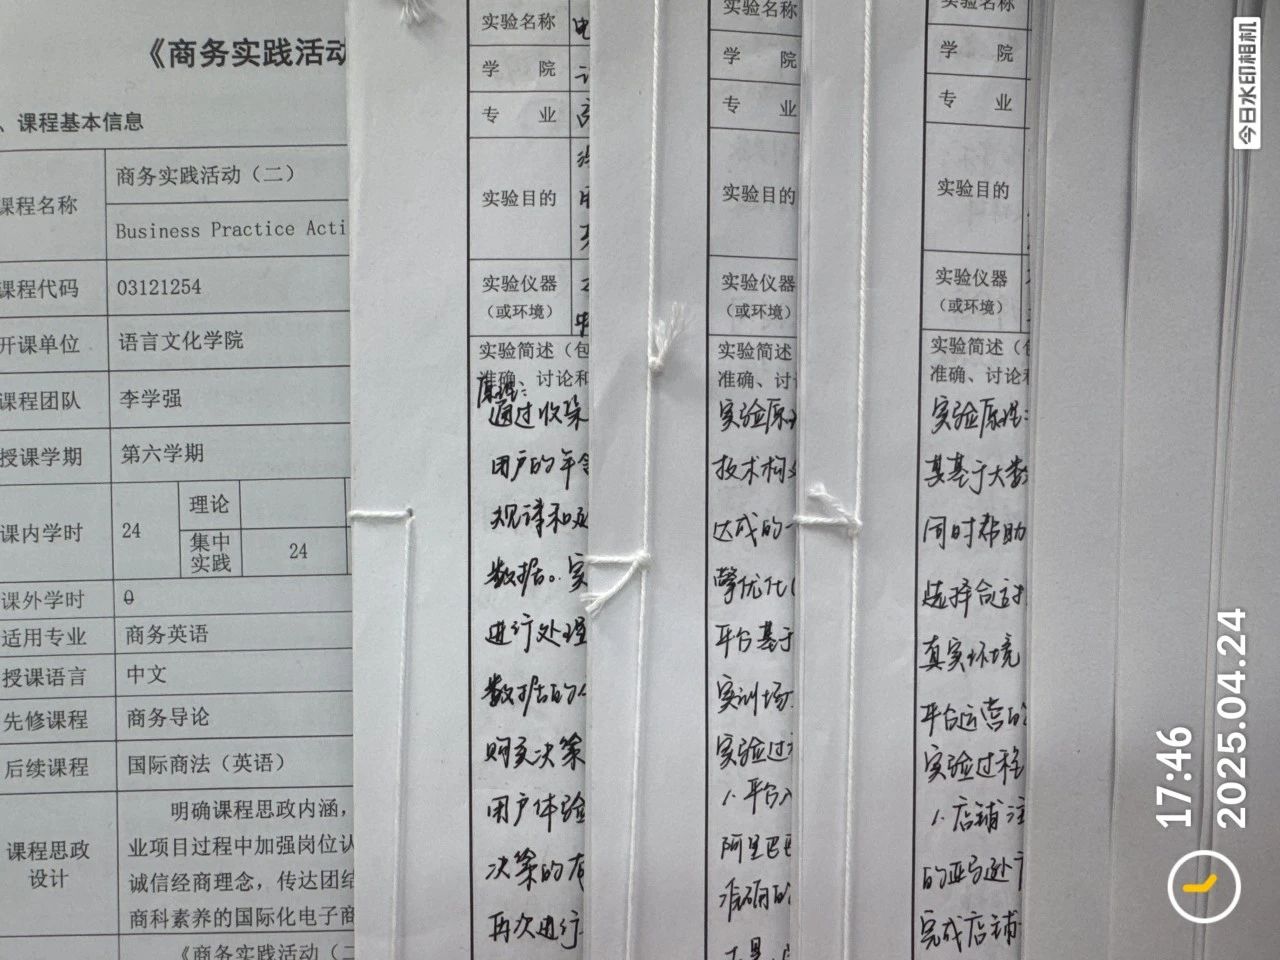 《商务实践活动
、课程基本信息
课程名称
商务实践活动（二）
Business Practice Acti
课程代码
03121254
开课单位
语言文化学院
课程团队
李学强
授课学期
第六学期
课内学时
24
理论
集中
实践
24
课外学时
0
适用专业
商务英语
授课语言
中文
先修课程
商务导论
后续课程
国际商法（英语）
课程思政
设计
明确课程思政内涵，
业项目过程中加强岗位认
诚信经商理念，传达团结
商科素养的国际化电子商
《商务实践活动（二
实验名称
学 院
专 业
实验目的
实验仪器
（或环境）
实验简述（包
准确、讨论和
原理：
通过收集
用户的年
规律和
数据。实
进行处理
数据的
购买决策
用户体验
决策的有
再次进行
实验名称
学 院
专 业
实验目的
实验仪器
（或环境）
实验简述
准确、讨
实验原
技术构
达成的一
擎优化
平台基于
实训场
实验过
1.平台入
阿里巴巴
准确的
工具、
实验名称
学 院
专 业
实验目的
实验仪器
（或环境）
实验简述（包
准确、讨论和
实验原理：
某基于大数
同时帮助
选择合适
真实环境
平台运营的
实验过程
1.店铺注
的亚马逊
完成店铺
今日水印相机
17:46
2025.04.24